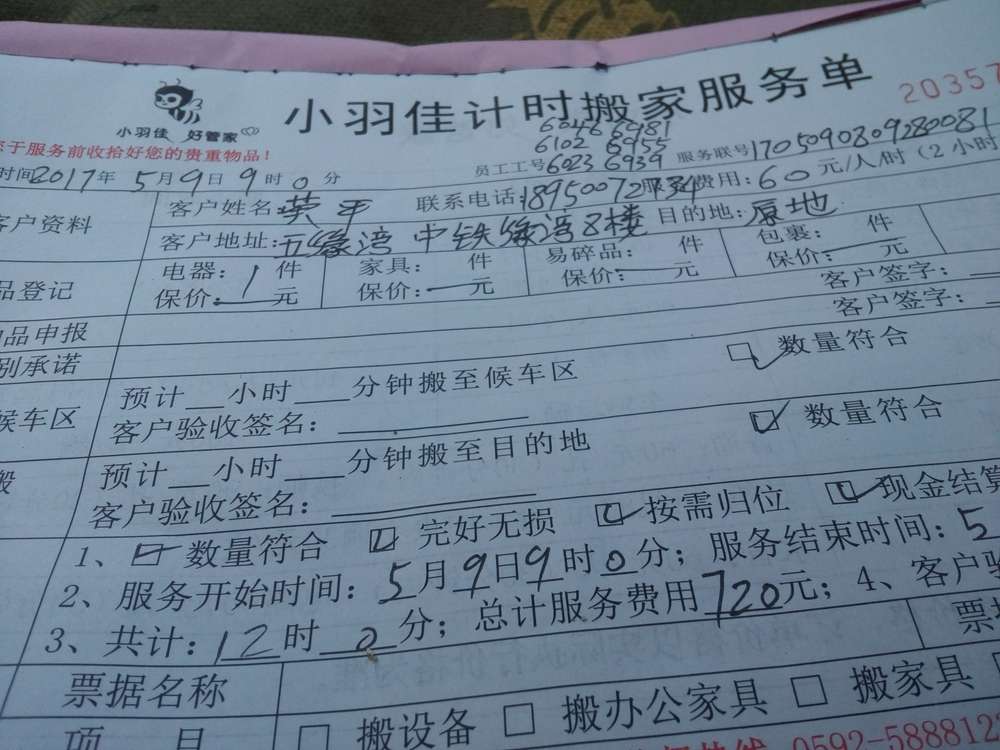 小羽佳计时搬家服务单
20357
小羽佳 好管家
于服务前收拾好您的贵重物品！
6046 6981
6102 6955
员工工号 6023 6939 服务联号 1705090809280081
时间2017年5月9日9时0分
客户姓名: 平 联系电话:18950072 费用：60元/人/时（2小时
客户资料
客户地址: 五缘湾 中铁 8楼 目的地：原地
电器：1件 家具： 件 易碎品： 件 包裹： 件
品登记
保价：—元 保价：—元 保价：—元 保价：—元
客户签字：
品申报
客户签字：
别承诺
预计__小时___分钟搬至候车区 数量符合
候车区
客户验收签名：
预计__小时___分钟搬至目的地 数量符合
搬
客户验收签名：
1、 数量符合 完好无损 按需归位 现金结算
2、服务开始时间：5月9日9时0分；服务结束时间：5
3、共计：12时0分；总计服务费用720元；4、客户验
票据名称
票
项 目 □ 搬设备 □ 搬办公家具 □ 搬家具
0592-588812